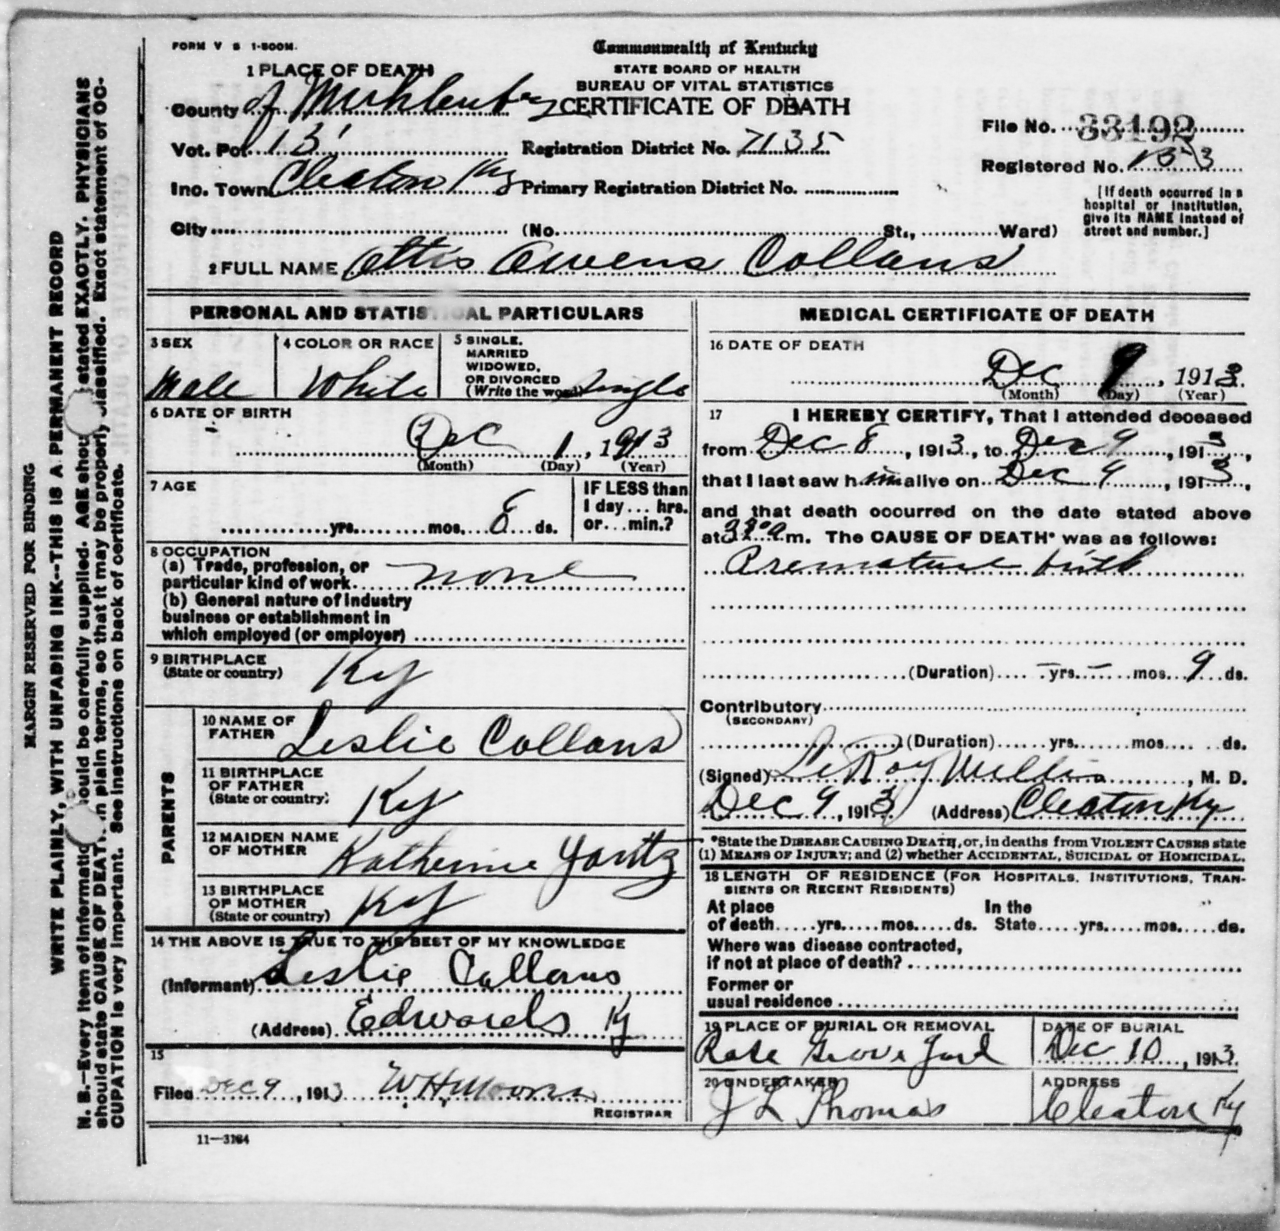 FORM V S 1-500M.
Commonwealth of Kentucky
STATE BOARD OF HEALTH
BUREAU OF VITAL STATISTICS
CERTIFICATE OF DEATH
1 PLACE OF DEATH
County of Muhlenberg
Vot. Pct. 13
Registration District No. 7135
File No. 33192
Registered No.
Inc. Town Cleaton Ky
Primary Registration District No.
[If death occurred in a hospital or institution, give its NAME instead of street and number.]
City (No. St., Ward)
2 FULL NAME Ottis Owens Collans
PERSONAL AND STATISTICAL PARTICULARS
3 SEX Male
4 COLOR OR RACE White
5 SINGLE, MARRIED WIDOWED, OR DIVORCED (Write the word) Single
6 DATE OF BIRTH
Dec 1, 1913
(Month) (Day) (Year)
7 AGE
yrs. mos. 8 ds.
IF LESS than 1 day... hrs. or... min.?
8 OCCUPATION
(a) Trade, profession, or particular kind of work none
(b) General nature of Industry business or establishment in which employed (or employer)
9 BIRTHPLACE (State or country) Ky
PARENTS
10 NAME OF FATHER Leslie Collans
11 BIRTHPLACE OF FATHER (State or country) Ky
12 MAIDEN NAME OF MOTHER Katherine Yontz
13 BIRTHPLACE OF MOTHER (State or country) Ky
14 THE ABOVE IS TRUE TO THE BEST OF MY KNOWLEDGE
(Informant) Leslie Collans
(Address) Edwards Ky
15
Filed Dec 9, 1913 W.H. Moore
REGISTRAR
11-3184
MEDICAL CERTIFICATE OF DEATH
16 DATE OF DEATH
Dec 9, 1913
(Month) (Day) (Year)
17 I HEREBY CERTIFY, That I attended deceased
from Dec 8, 1913, to Dec 9, 1913,
that I last saw him alive on Dec 9, 1913,
and that death occurred on the date stated above
at 3 30 a m. The CAUSE OF DEATH* was as follows:
Premature birth
(Duration) - yrs. - mos. 9 ds.
Contributory
(SECONDARY)
(Duration) yrs. mos. ds.
(Signed) LeRoy Willis, M. D.
Dec 9, 1913 (Address) Cleaton Ky
*State the DISEASE CAUSING DEATH, or, in deaths from VIOLENT CAUSES state
(1) MEANS OF INJURY; and (2) whether ACCIDENTAL, SUICIDAL or HOMICIDAL.
18 LENGTH OF RESIDENCE (FOR HOSPITALS, INSTITUTIONS, TRAN-
SIENTS OR RECENT RESIDENTS)
At place In the
of death yrs. mos. ds. State yrs. mos. ds.
Where was disease contracted,
if not at place of death?
Former or
usual residence
19 PLACE OF BURIAL OR REMOVAL
Rose Grove Yard
DATE OF BURIAL
Dec 10, 1913
20 UNDERTAKER
J L Thomas
ADDRESS
Cleaton Ky
MARGIN RESERVED FOR BINDING
WRITE PLAINLY, WITH UNFADING INK--THIS IS A PERMANENT RECORD
N. B.--Every item of information should be carefully supplied. AGE should be stated EXACTLY. PHYSICIANS
should state CAUSE OF DEATH in plain terms, so that it may be properly classified. Exact statement of OC-
CUPATION is very important. See instructions on back of certificate.